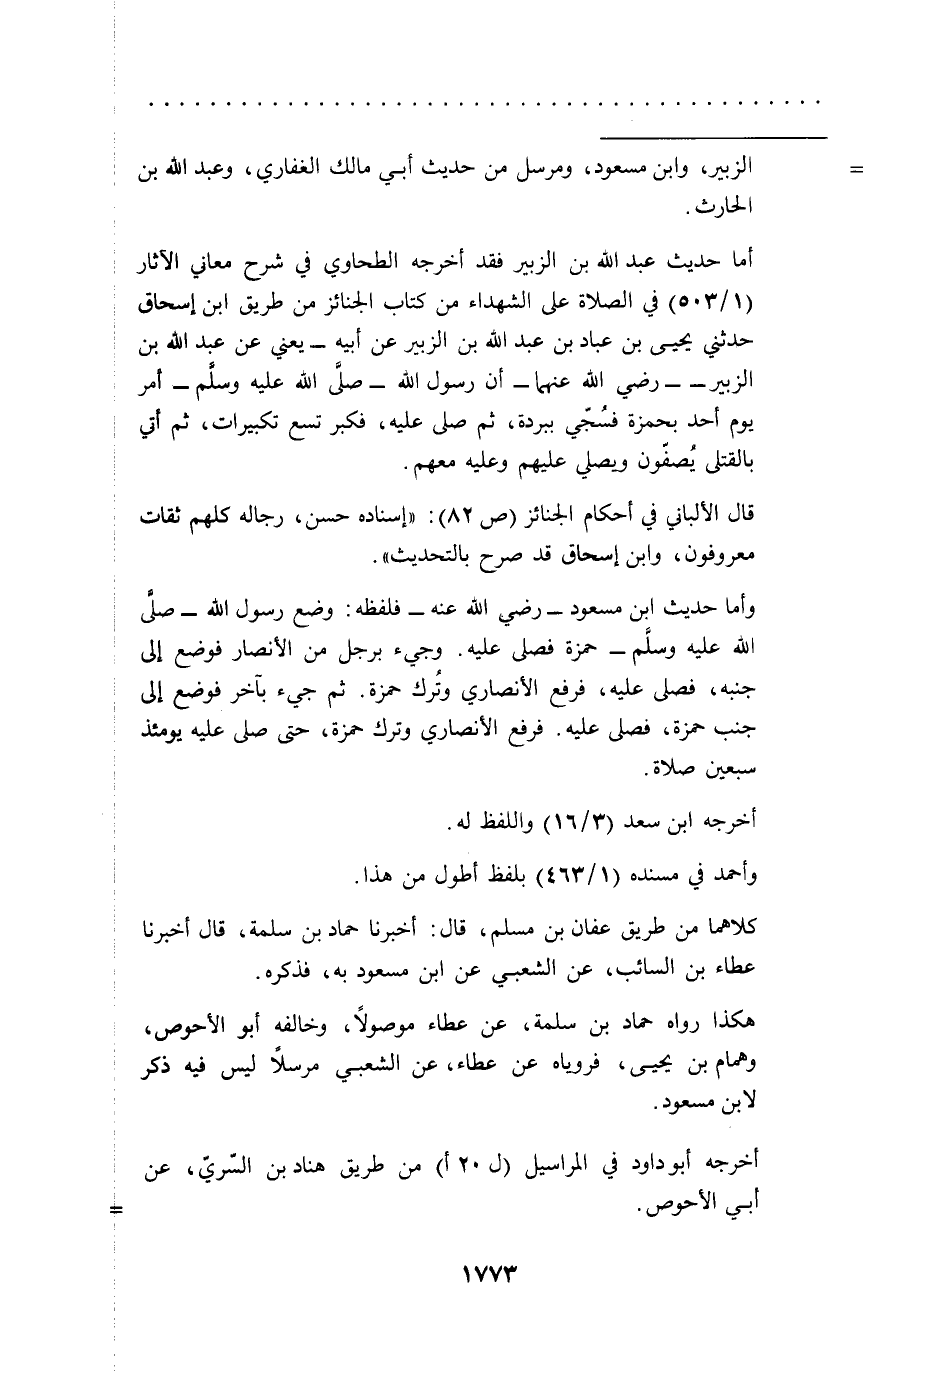 = الزبير، وابن مسعود، ومرسل من حديث أبي مالك الغفاري، وعبد الله بن
الحارث.
أما حديث عبد الله بن الزبير فقد أخرجه الطحاوي في شرح معاني الآثار
(٥٠٣/١) في الصلاة على الشهداء من كتاب الجنائز من طريق ابن إسحاق
حدثني يحيى بن عباد بن عبد الله بن الزبير عن أبيه ــ يعني عن عبد الله بن
الزبير ــ ــ رضي الله عنهما ــ أن رسول الله ــ صلَّى الله عليه وسلَّم ــ أمر
يوم أحد بحمزة فسُجّي ببردة، ثم صلى عليه، فكبر تسع تكبيرات، ثم أتي
بالقتلى يُصفّون ويصلي عليهم وعليه معهم.
قال الألباني في أحكام الجنائز (ص ٨٢): «إسناده حسن، رجاله كلهم ثقات
معروفون، وابن إسحاق قد صرح بالتحديث».
وأما حديث ابن مسعود ــ رضي الله عنه ــ فلفظه: وضع رسول الله ــ صلَّى
الله عليه وسلَّم ــ حمزة فصلى عليه. وجيء برجل من الأنصار فوضع إلى
جنبه، فصلى عليه، فرفع الأنصاري وتُرك حمزة. ثم جيء بآخر فوضع إلى
جنب حمزة، فصلى عليه. فرفع الأنصاري وترك حمزة، حتى صلى عليه يومئذ
سبعين صلاة.
أخرجه ابن سعد (١٦/٣) واللفظ له.
وأحمد في مسنده (٤٦٣/١) بلفظ أطول من هذا.
كلاهما من طريق عفان بن مسلم، قال: أخبرنا حماد بن سلمة، قال أخبرنا
عطاء بن السائب، عن الشعبي عن ابن مسعود به، فذكره.
هكذا رواه حماد بن سلمة، عن عطاء موصولاً، وخالفه أبو الأحوص،
وهمام بن يحيى، فروياه عن عطاء، عن الشعبي مرسلاً ليس فيه ذكر
لابن مسعود.
أخرجه أبو داود في المراسيل (ل ٢٠ أ) من طريق هناد بن السّريّ، عن
أبي الأحوص. =
١٧٧٣